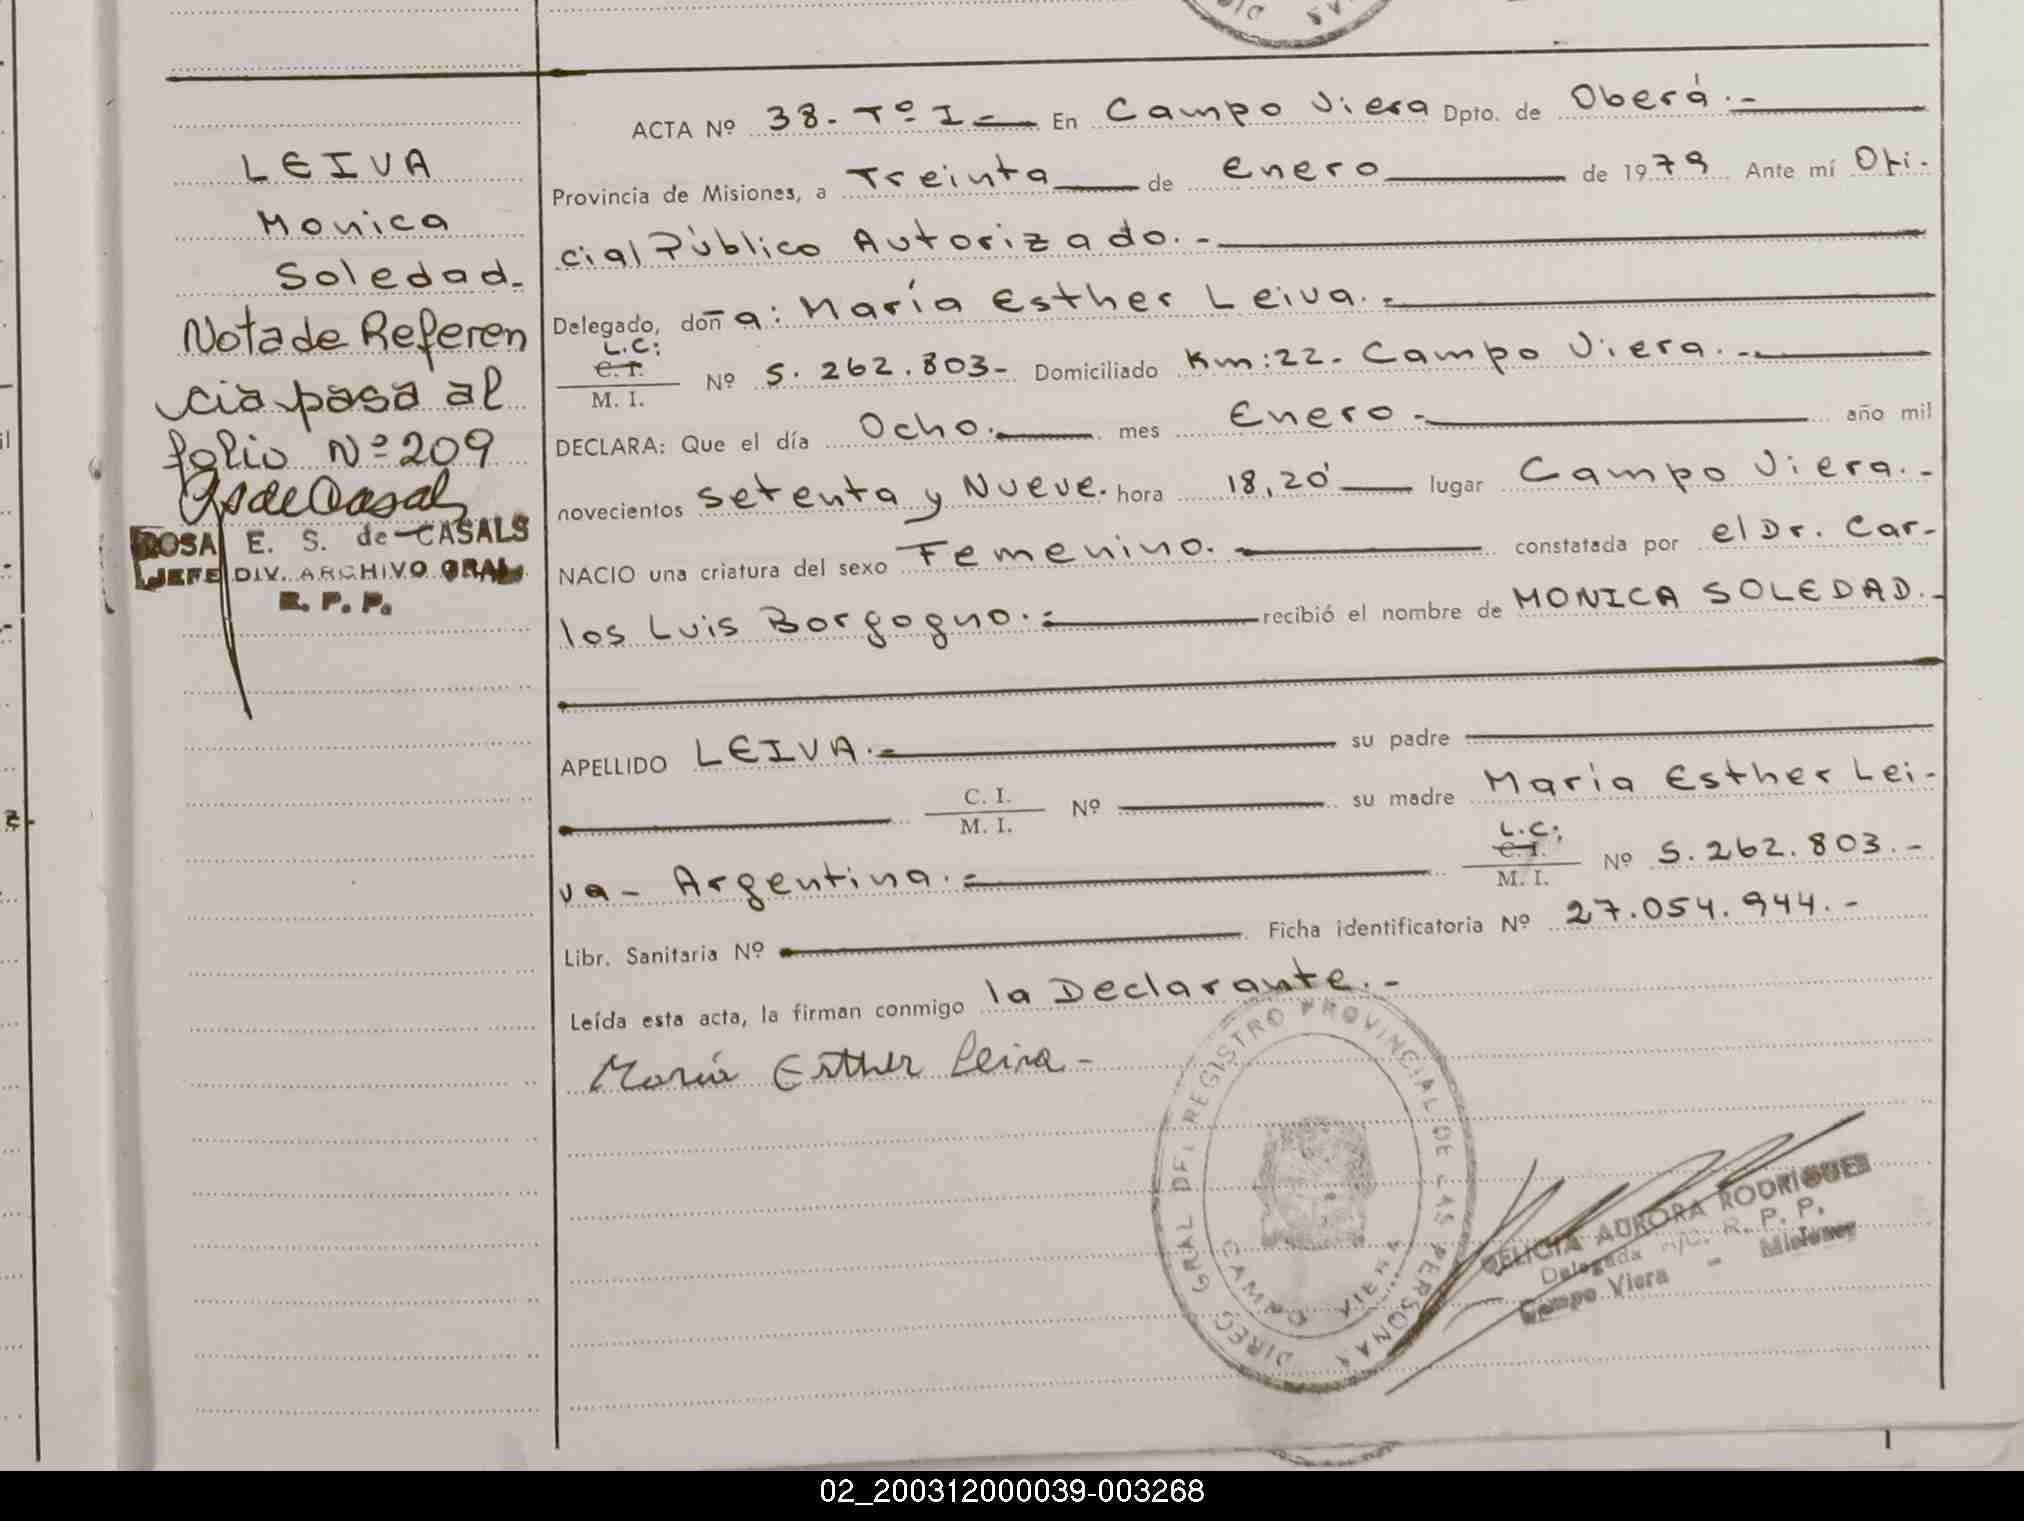 ACTA Nº 38.- Tº I - En Campo Viera Dpto. de Oberá.-
Provincia de Misiones, a Treinta de Enero de 1979 Ante mí Ofi-
cial Público Autorizado.-
Delegado, doña: María Esther Leiva.-
L.C:
C. I.
M. I.
Nº 5.262.803- Domiciliado Km:22- Campo Viera.-
DECLARA: Que el día Ocho.- mes Enero.- año mil
novecientos setenta y Nueve. hora 18,20' lugar Campo Viera.-
NACIO una criatura del sexo Femenino.- constatada por el Dr. Car-
los Luis Borgogno.- recibió el nombre de MONICA SOLEDAD.-
APELLIDO LEIVA.- su padre
C. I.
M. I.
Nº su madre María Esther Lei-
va - Argentina.-
L.C:
C. I.
M. I.
Nº 5.262.803.-
Libr. Sanitaria Nº Ficha identificatoria Nº 27.054.944.-
Leída esta acta, la firman conmigo la Declarante.-
María Esther Leiva -
LEIVA
Monica
Soledad-
Nota de Referen
cia pasa al
folio Nº 209
ROSA E. S. de CASALS
JEFE DIV. ARCHIVO GRAL.
R. P. P.
DIREC. GRAL DEL REGISTRO PROVINCIAL DE LAS PERSONAS
CAMPO VIERA
DELICIA AURORA RODRIGUES
Delegada R. P. P.
Campo Viera - Misiones
02_200312000039-003268